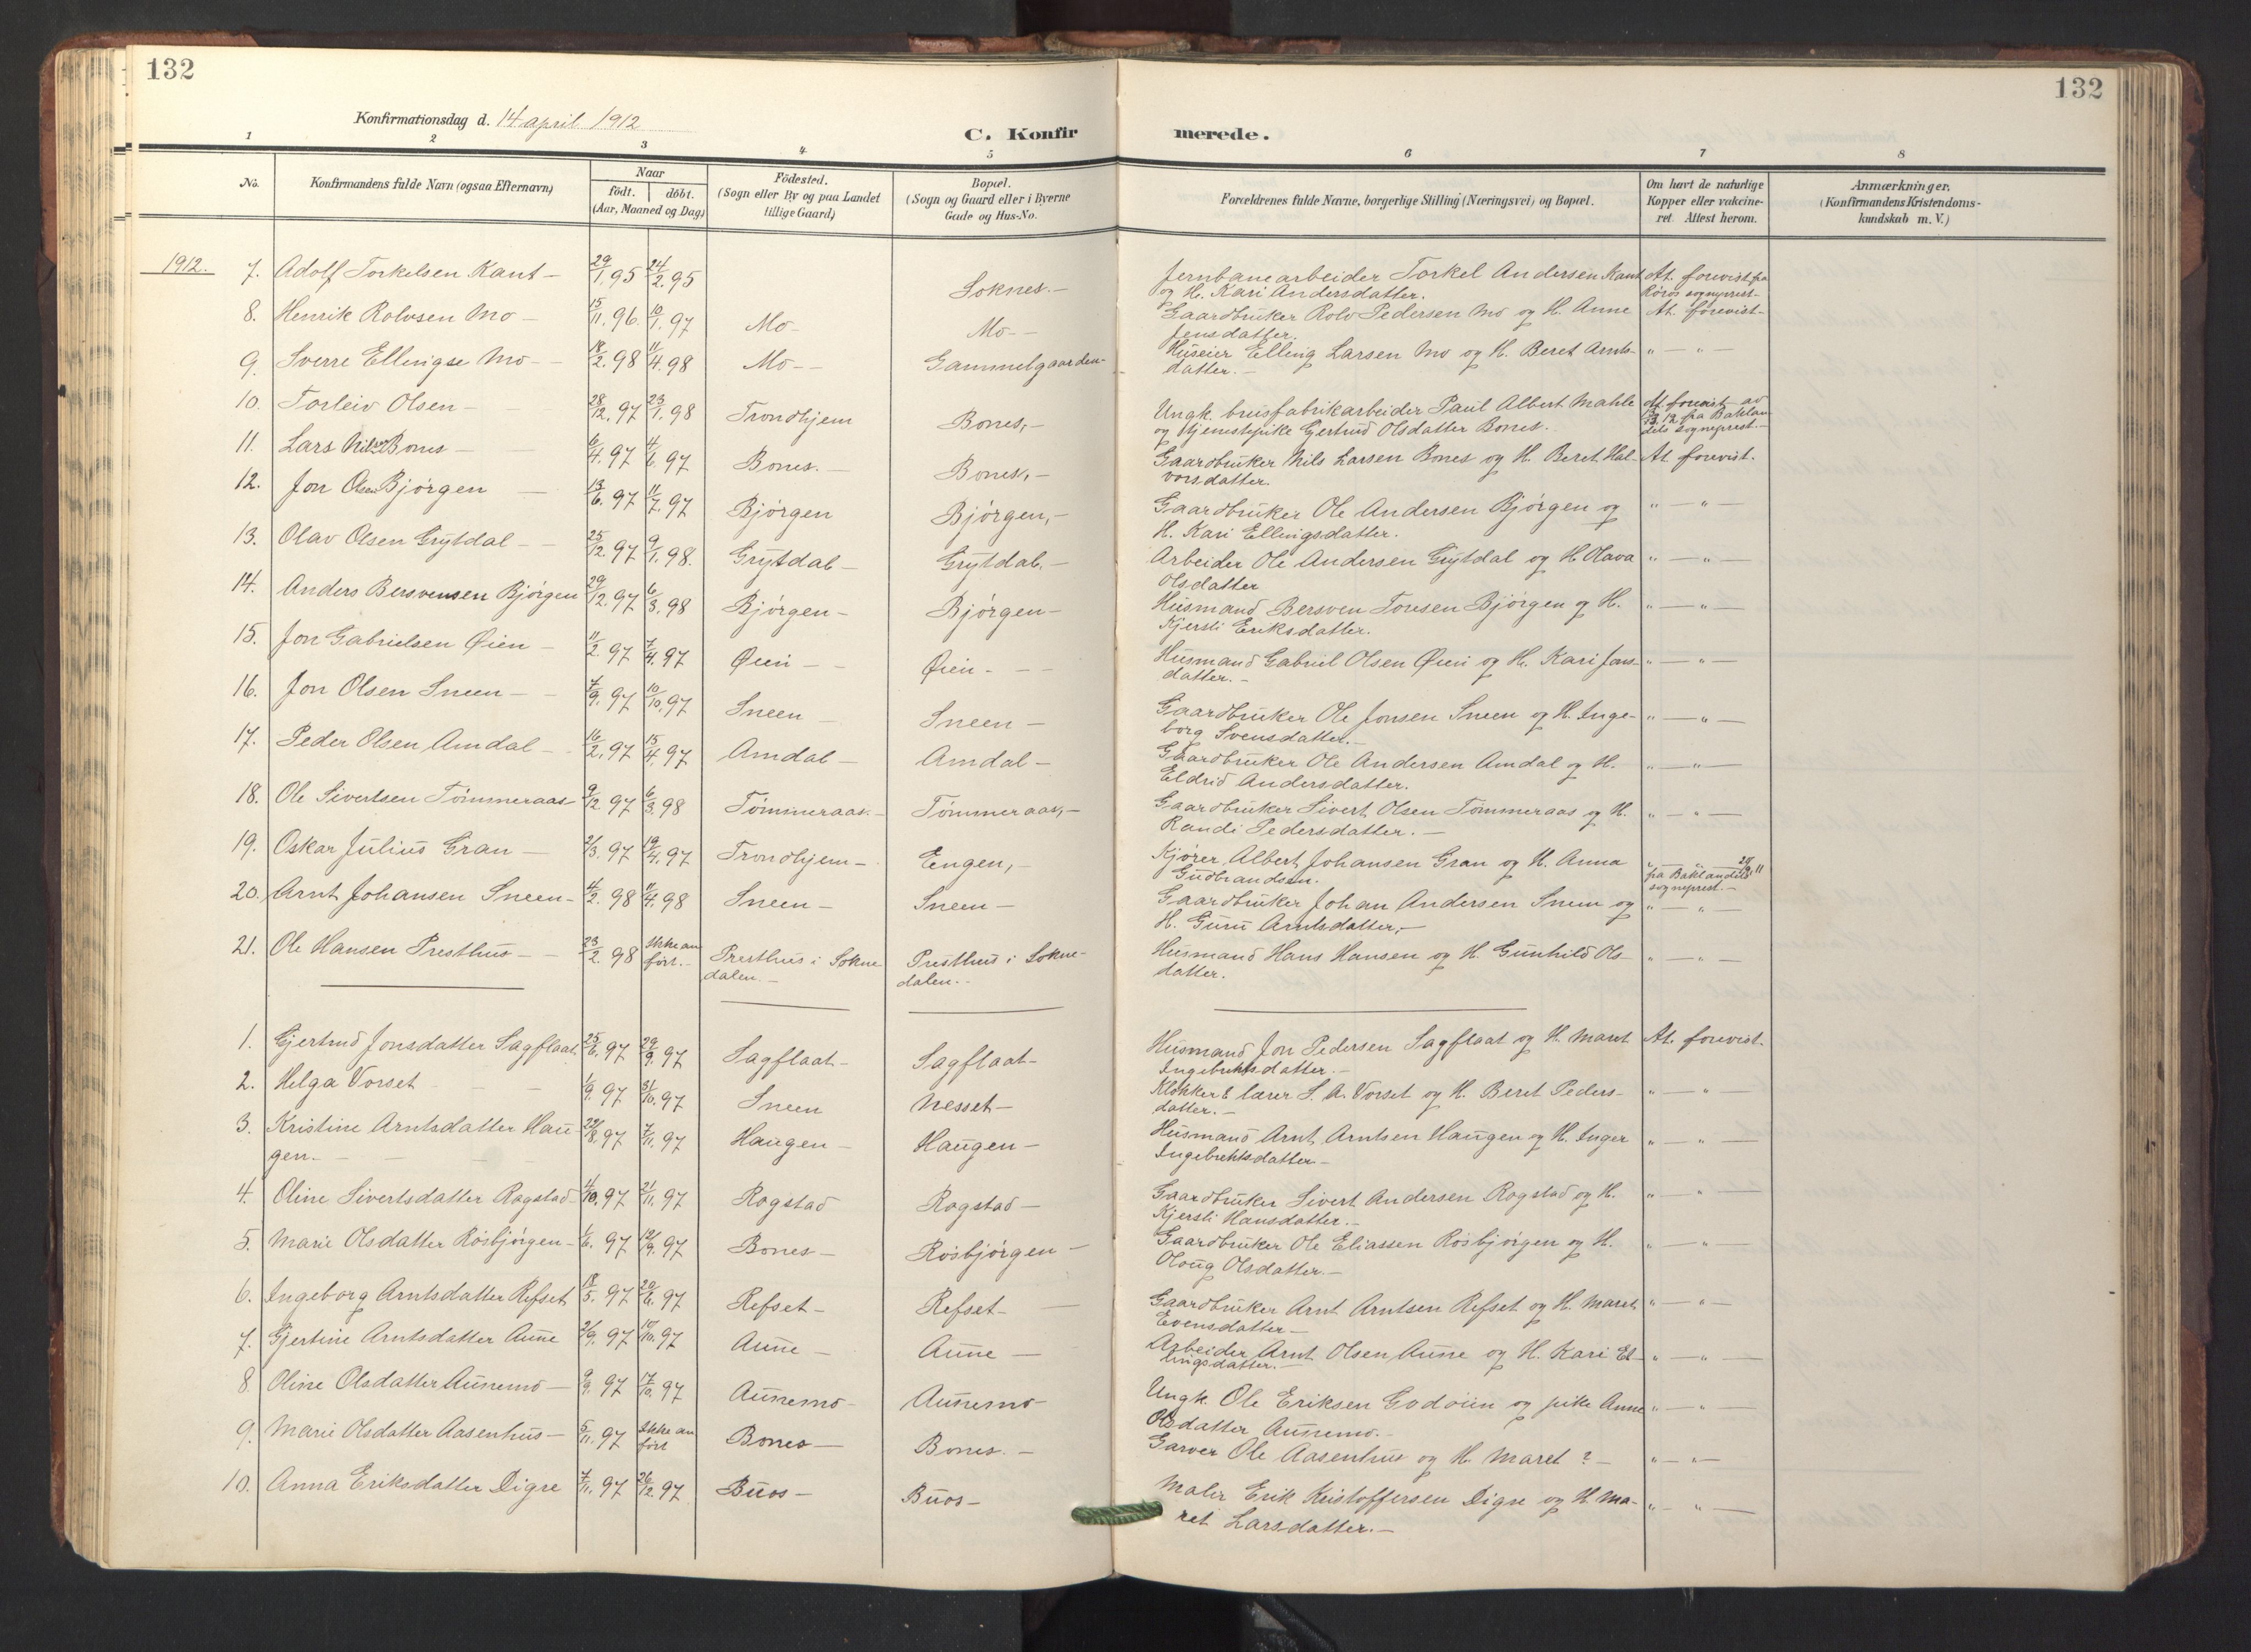 132
132
Konfirmationsdag d. 14 april 1912
C. Konfir merede.
1 2 3 4 5 6 7 8
No.
Konfirmandens fulde Navn (ogsaa Efternavn)
Naar
födt. döbt.
(Aar, Maaned og Dag)
Födested.
(Sogn eller By og paa Landet
tillige Gaard)
Bopæl.
(Sogn og Gaard eller i Byerne
Gade og Hus-No.
Forældrenes fulde Navne, borgerlige Stilling (Næringsvei) og Bopæl.
Om havt de naturlige
Kopper eller vakcine-
ret. Attest herom.
Anmærkninger.
(Konfirmandens Kristendoms-
kundskab m. V.)
1912. 7. Adolf Torkelsen Kant - 29/1.95 24/2.95 Soknes.- Jernbanearbeider Torkel Andersen Kant At. forevist fra
og H. Kari Andersdatter. Röros sogneprest-
8. Henrik Rolvsen Mo - 15/11.96. 10/1.97 Mo- Mo- Gaardbruker Rolv Pedersen Mo og H. Anne At. forevist-
Jensdatter.
9. Sverre Ellingse Mo - 18/2.98 11/4.98 Mo-- Gammelgaarden- Huseier Elling Larsen Mo og H. Beret Arnts- " - " -
datter.-
10. Torleiv Olsen - 28/12.97 23/1.98 Trondhjem Bones,- Ungk. brusfabrikarbeider Paul Albert Mahle At. forevist av
og tjenestepike Gjertrud Olsdatter Bones. 13/3.12 fra Baklan
dets sogneprest.-
11. Lars Nilsen Bones - 6/4.97 4/6.97 Bones.- Bones,- Gaardbruker Nils Larsen Bones og H. Beret Hal- At. forevist.
vorsdatter.
12. Jon Olsen Bjørgen - 13/6.97 11/7.97 Bjørgen Bjørgen,- Gaardbruker Ole Andersen Bjørgen og " - " -
H. Kari Ellingsdatter.
13. Olav Olsen Grytdal - 25/12.97 9/1.98. Grytdal - Grytdal.- Arbeider Ole Andersen Grytdal og H. Olava " - " -
Olsdatter
14. Anders Bersvensen Bjørgen 29/12.97 6/3.98 Bjørgen - Bjørgen - Husmand Bersven Tonsen Bjørgen og H. " - " -
Kjersti Eriksdatter.
15. Jon Gabrielsen Øien - 11/2.97 7/4.97 Øien - - Øien - - Husmand Gabriel Olsen Øien og H. Kari Jons- " - " -
datter.-
16. Jon Olsen Sneen - 7/9.97 10/10.97 Sneen - Sneen - Gaardbruker Ole Jonsen Sneen og H. Inge- " - " -
borg Svensdatter.-
17. Peder Olsen Amdal - 16/2.97 15/4.97 Amdal - Amdal - Gaardbruker Ole Andersen Amdal og H. " - " -
Eldrid Andersdatter.
18. Ole Sivertsen Tömmeraas- 9/12.97 6/3.98 Tömmeraas.- Tömmeraas,- Gaardbruker Sivert Olsen Tömmeraas og H. " - " -
Randi Pedersdatter.-
19. Oskar Julius Gran - 2/3.97 19/4.97 Trondhjem- Engen,- Kjører Albert Johansen Gran og H. Anna
Gudbrandsen. fra Baklandets
sogneprest.-
20. Arnt Johansen Sneen - 4/2.98 11/4.98 Sneen - Sneen - Gaardbruker Johan Andersen Sneen og " - " -
H. Guru Arntsdatter,-
21. Ole Hansen Presthus - 23/2.98 Ikke an Presthus i Sokne Presthus i Sokne- Husmand Hans Hansen og H. Gunhild Ols- " - " -
fört.- dalen.- dalen.- datter.
1. Gjertrud Jonsdatter Sagflaat 25/6.97 29/9.97 Sagflaat- Sagflaat- Husmand Jon Pedersen Sagflaat og H. Marit At. forevist.
Ingebrektsdatter.-
2. Helga Vorset - 1/9.97 31/10.97 Sneen Nesset- Klokker & lærer S. A. Vorset og H. Beret Peders- " - " -
datter.-
3. Kristine Arntsdatter Hau- 22/8.97 7/11.97 Haugen - Haugen - Husmand Arnt Arntsen Haugen og H. Inger " - " -
gen.- Ingebrektsdatter-
4. Oline Sivertsdatter Rogstad 4/10.97 21/11.97 Rogstad Rogstad - Gaardbruker Sivert Andersen Rogstad og H. " - " -
Kjersti Hansdatter.-
5. Marie Olsdatter Rösbjörgen- 1/6.97 12/9.97 Bones- Rösbjörgen - Gaardbruker Ole Eliassen Rösbjörgen og H. " - " -
Oloug Olsdatter.-
6. Ingeborg Arntsdatter Refset 18/5.97 20/6.97 Refset- Refset- Gaardbruker Arnt Arntsen Refset og H. Maret " - " -
Evensdatter-
7. Gjertine Arntsdatter Aune 2/9.97 10/10.97 Aune - Aune - Arbeider Arnt Olsen Aune og H. Kari El- " - " -
lingsdatter.-
8. Oline Olsdatter Aunemo - 9/9.97 17/10.97 Aunemo- Aunemo- Ungk. Ole Eriksen Godöien og pike Anne " - " -
Olsdatter Aunemo.-
9. Marie Olsdatter Aasenhus- 5/11.97 Ikke an Bones- Bones.- Garver Ole Aasenhus og H. Maret ?- " - " -
fört
10. Anna Eriksdatter Digre 7/11.97 26/12.97 Buos- Buos- Maler Erik Kristoffersen Digre og H. Ma- " - " -
ret Larsdatter.-